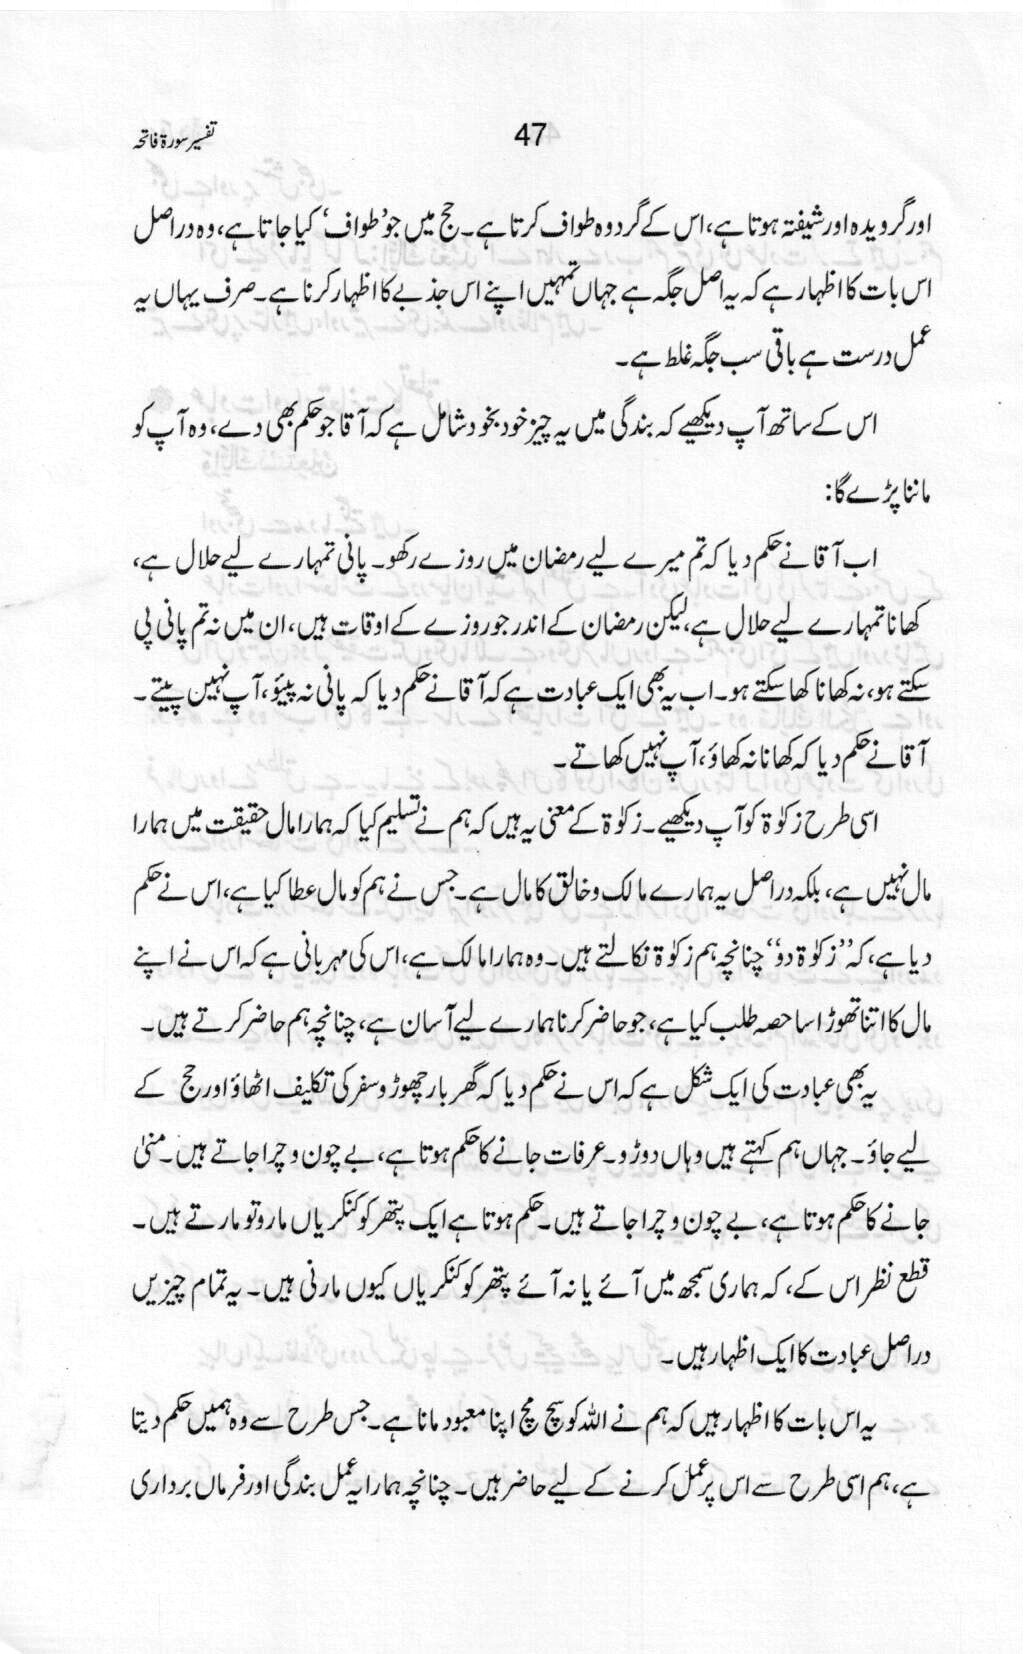 تفسیر سورۃ فاتحہ
47
اور گرویدہ اور شیفتہ ہوتا ہے، اس کے گرد وہ طواف کرتا ہے۔ حج میں جو ’طواف‘ کیا جاتا ہے، وہ دراصل
اس بات کا اظہار ہے کہ یہ اصل جگہ ہے جہاں تمہیں اپنے اس جذبے کا اظہار کرنا ہے۔ صرف یہاں یہ
عمل درست ہے باقی سب جگہ غلط ہے۔
اس کے ساتھ آپ دیکھیے کہ بندگی میں یہ چیز خود بخود شامل ہے کہ آقا جو حکم بھی دے، وہ آپ کو
ماننا پڑے گا:
اب آقا نے حکم دیا کہ تم میرے لیے رمضان میں روزے رکھو۔ پانی تمہارے لیے حلال ہے،
کھانا تمہارے لیے حلال ہے، لیکن رمضان کے اندر جو روزے کے اوقات ہیں، ان میں نہ تم پانی پی
سکتے ہو، نہ کھانا کھا سکتے ہو۔ اب یہ بھی ایک عبادت ہے کہ آقا نے حکم دیا کہ پانی نہ پیئو، آپ نہین پیتے۔
آقا نے حکم دیا کہ کھانا نہ کھاؤ، آپ نہیں کھاتے۔
اسی طرح زکوٰۃ کو آپ دیکھیے۔ زکوٰۃ کے معنی یہ ہیں کہ ہم نے تسلیم کیا کہ ہمارا مال حقیقت میں ہمارا
مال نہیں ہے، بلکہ دراصل یہ ہمارے مالک و خالق کا مال ہے۔ جس نے ہم کو مال عطا کیا ہے، اس نے حکم
دیا ہے، کہ ’’زکوٰۃ دو‘‘ چنانچہ ہم زکوٰۃ نکالتے ہیں۔ وہ ہمارا مالک ہے، اس کی مہربانی ہے کہ اس نے اپنے
مال کا اتنا تھوڑا سا حصہ طلب کیا ہے، جو حاضر کرنا ہمارے لیے آسان ہے، چنانچہ ہم حاضر کرتے ہیں۔
یہ بھی عبادت کی ایک شکل ہے کہ اس نے حکم دیا کہ گھر بار چھوڑو سفر کی تکلیف اٹھاؤ اور حج کے
لیے جاؤ۔ جہاں ہم کہتے ہیں وہاں دوڑو۔ عرفات جانے کا حکم ہوتا ہے، بے چون و چرا جاتے ہیں۔ منیٰ
جانے کا حکم ہوتا ہے، بے چون و چرا جاتے ہیں۔ حکم ہوتا ہے ایک پتھر کو کنکریاں مارو تو مارتے ہیں۔
قطع نظر اس کے، کہ ہماری سمجھ میں آئے یا نہ آئے پتھر کو کنکریاں کیوں مارنی ہیں۔ یہ تمام چیزیں
دراصل عبادت کا ایک اظہار ہیں۔
یہ اس بات کا اظہار ہیں کہ ہم نے اللہ کو سچ مچ اپنا معبود مانا ہے۔ جس طرح سے وہ ہمیں حکم دیتا
ہے، ہم اسی طرح سے اس پر عمل کرنے کے لیے حاضر ہیں۔ چنانچہ ہمارا یہ عمل بندگی اور فرماں برداری